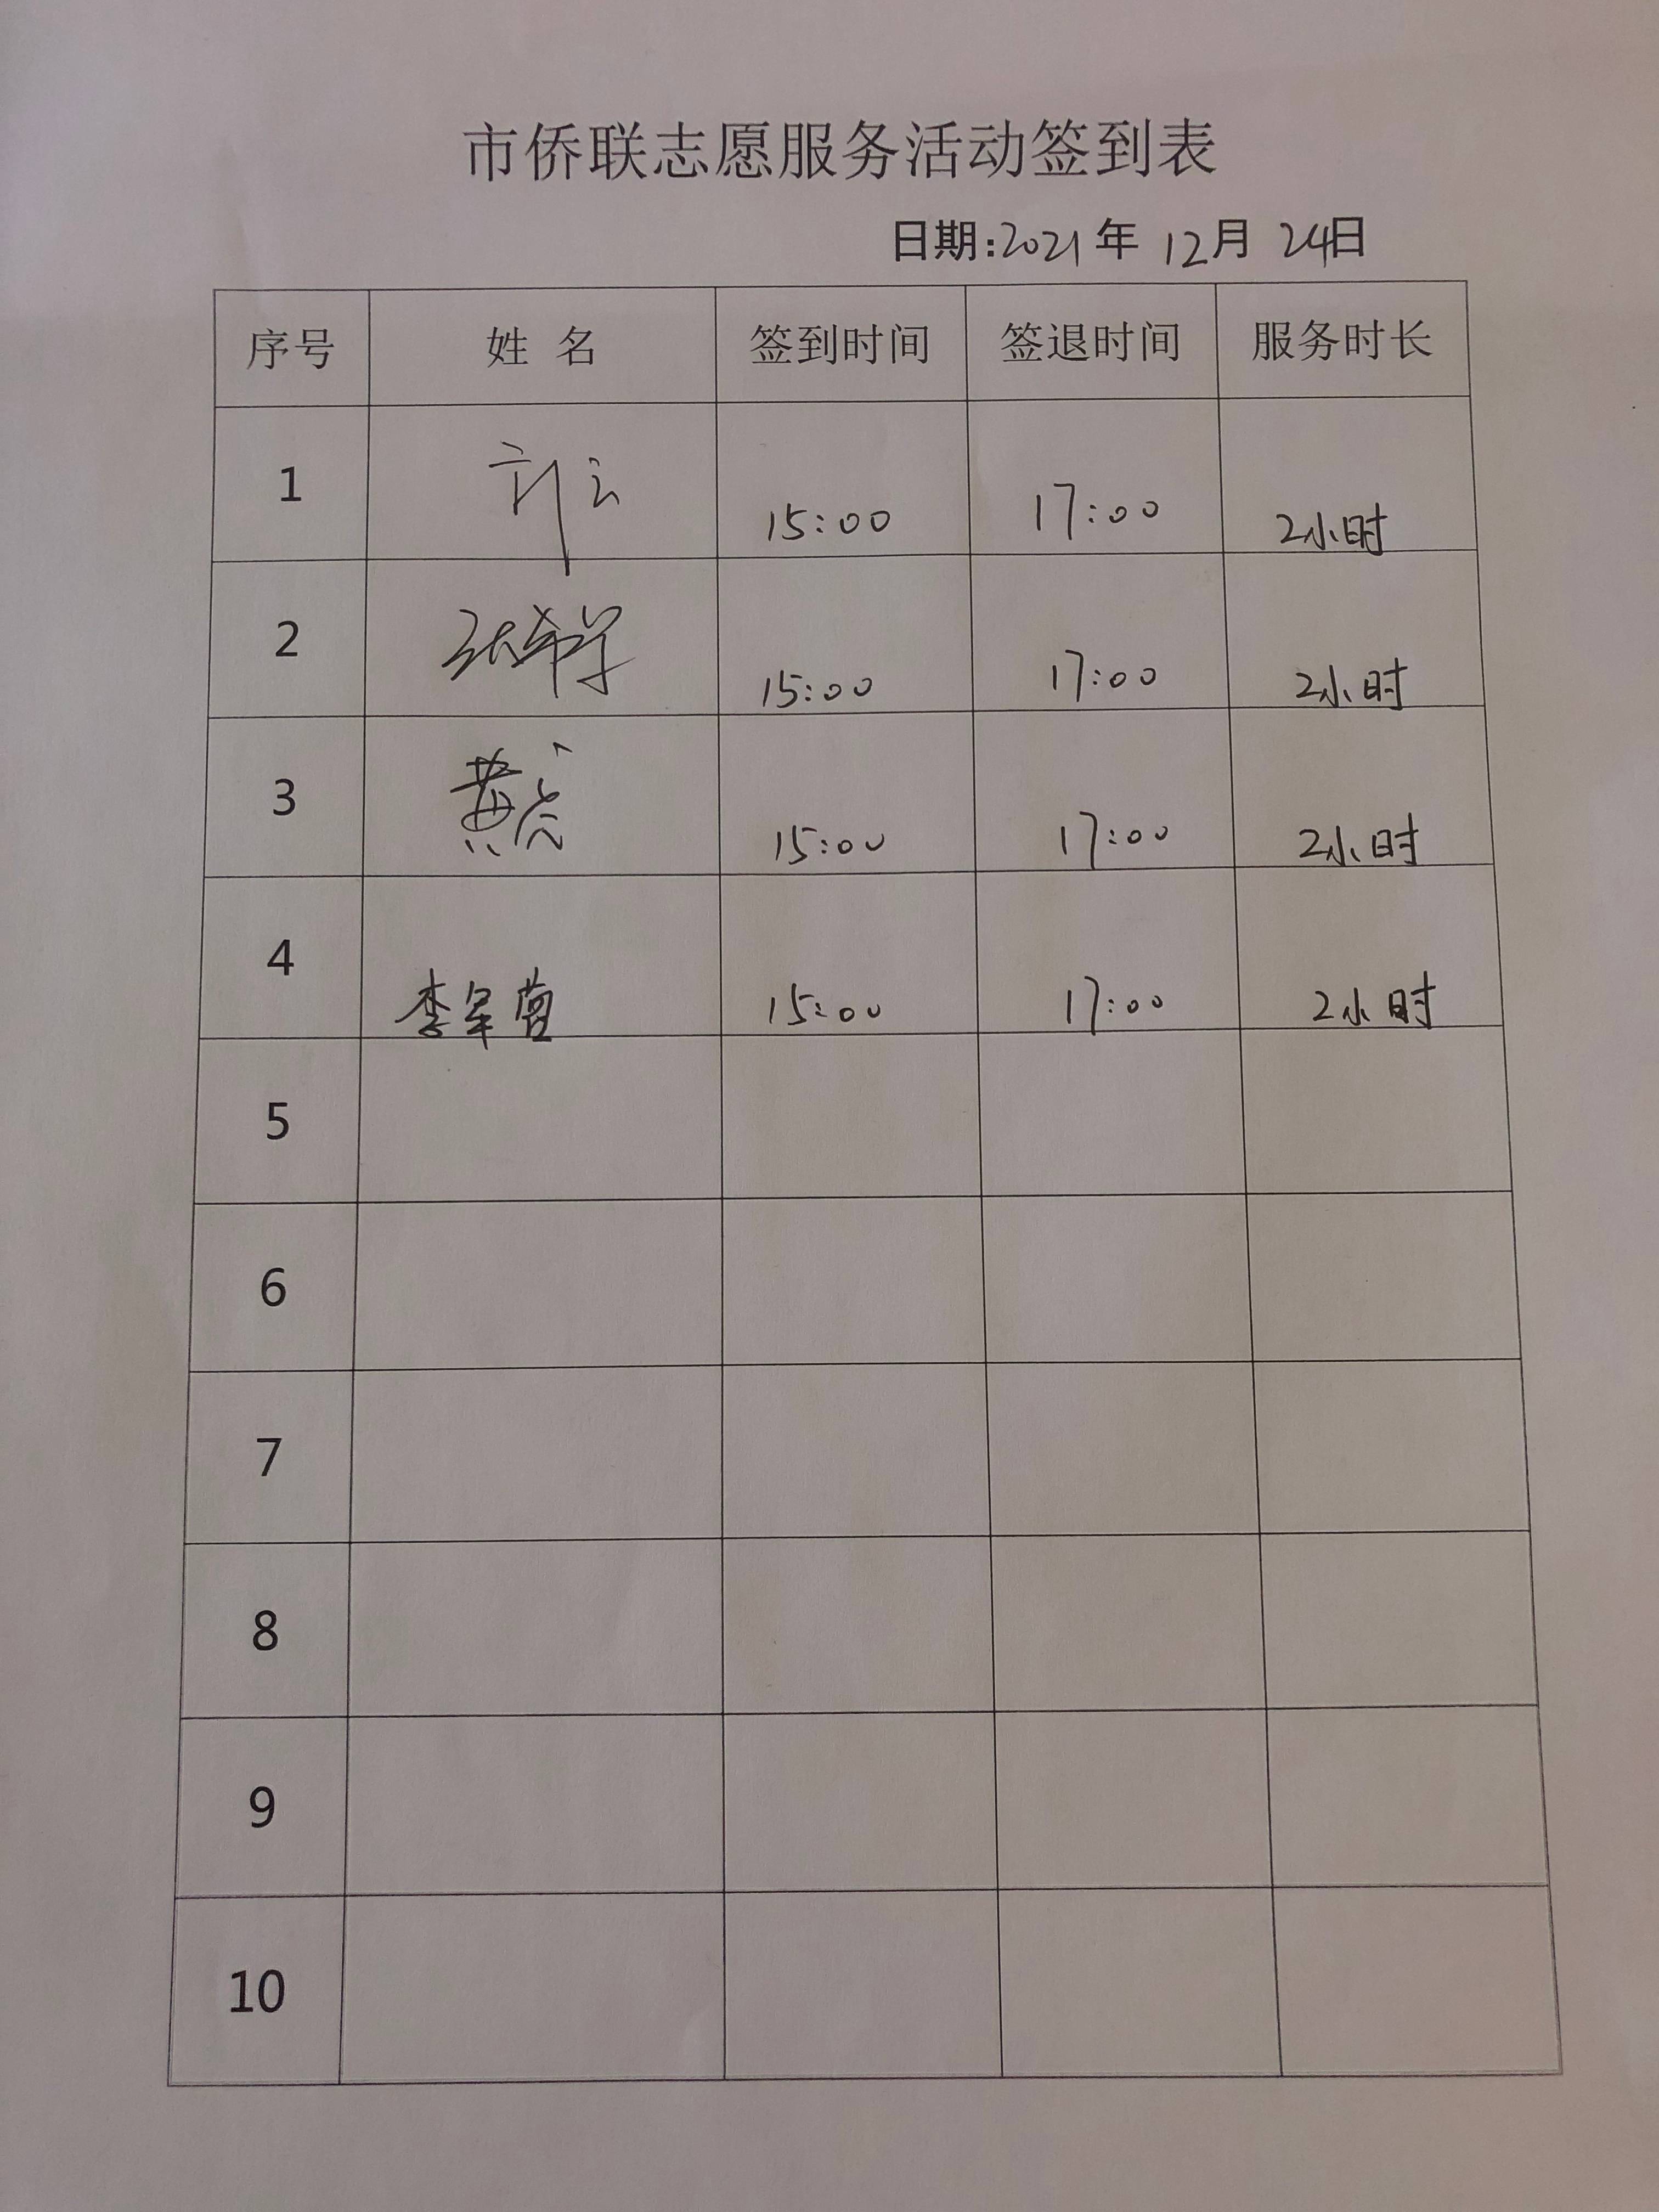 市侨联志愿服务活动签到表
日期:2021年 12月 24日
序号 姓 名 签到时间 签退时间 服务时长
1 15:00 17:00 2小时
2 15:00 17:00 2小时
3 黄 15:00 17:00 2小时
4 李军 15:00 17:00 2小时
5
6
7
8
9
10